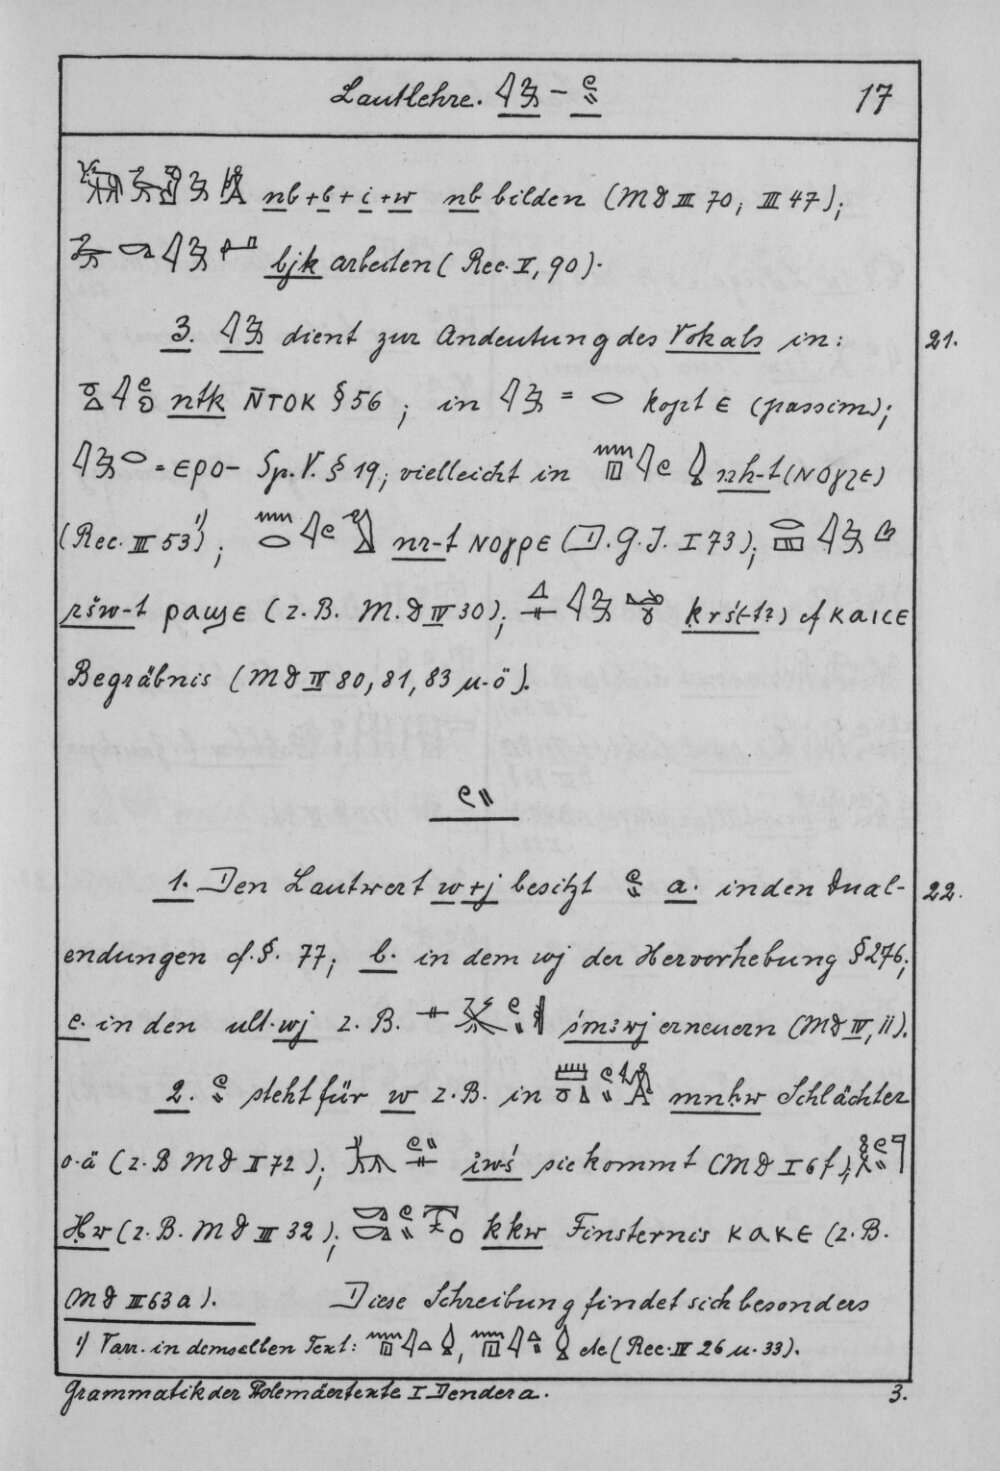 Lautlehre. 𓇋𓅱 – 𓏲𓏭 17
nb+b+i+w nb bilden (MD II 70, III 47);
bjk arbeiten (Rec. I, 90).
3. 𓇋𓅱 dient zur Andeutung des Vokals in: 21.
ntk N̄TOK § 56; in 𓇋𓅱 = 𓂋 kopt ϵ (passim);
𓇋𓅱𓂋 = ϵρο- Sp. V. § 19; vielleicht in nh-t (ⲛⲟⲩϩⲉ)
(Rec. III 53¹⁾); nr-t ⲛⲟⲩⲣⲉ (D.G.J. I 73);
ršw-t ⲣⲁϣⲉ (z.B. M.D IV 30); ḳrś(-t?) cf ⲕⲁⲓⲥⲉ
Begräbnis (MD IV 80, 81, 83 u. ö).
𓏲𓏭
1. Den Lautwert w+j besitzt 𓏲𓏭 a. in den Dual- 22.
endungen cf. §. 77; b. in dem wj der Hervorhebung § 276;
c. in den ult. wj z. B. śmꜣwj erneuern (MD IV, 11).
2. 𓏲𓏭 steht für w z. B. in mnḥw Schlächter
o. ä (z. B MD I 72); iwś sie kommt (MD I 6f);
Ḥw (z. B. MD III 32); kkw Finsternis ⲕⲁⲕⲉ (z. B.
MD II 63a). Diese Schreibung findet sich besonders
¹⁾ Varr. in demselben Text: etc (Rec. IV 26 u. 33).
Grammatik der Ptolemäertexte I Dendera. 3.